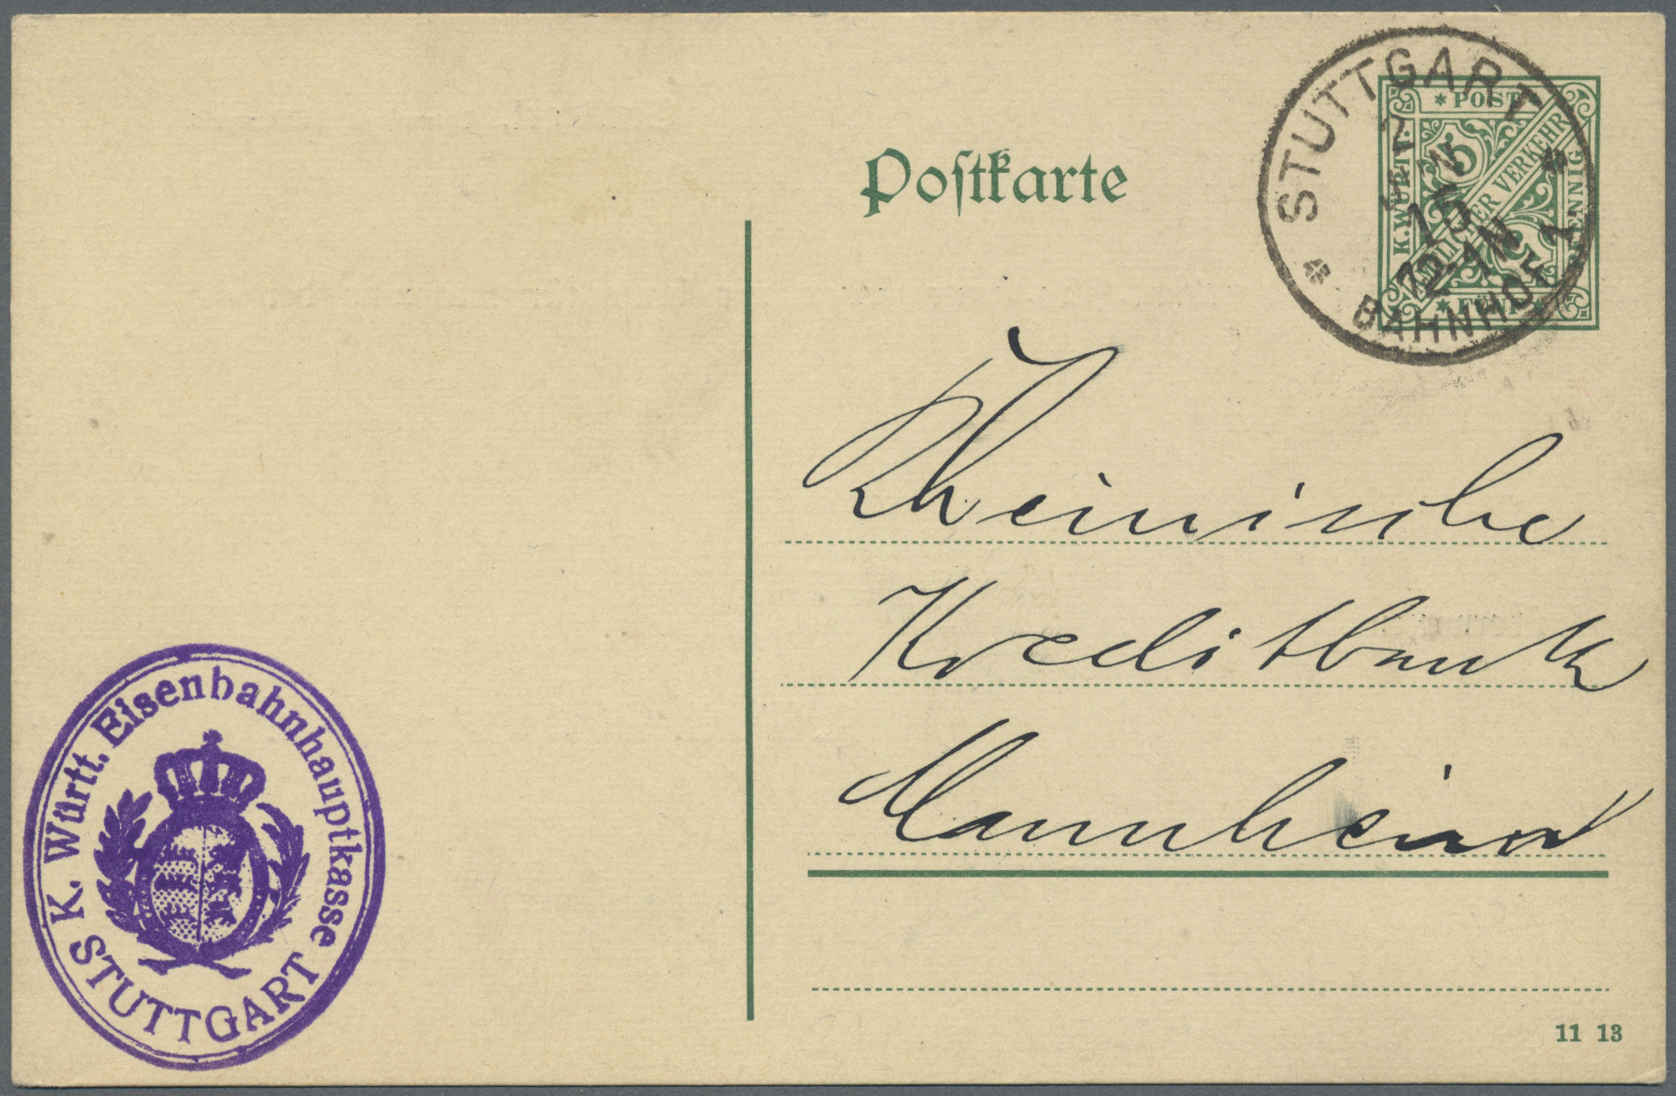 Postkarte
STUTTGART
15
BAHNHOF
* POST
K. WÜRTT.
5
AMTLICHER VERKEHR
PFENNIG
* FÜNF *
Rheinische
Kreditbank
Mannheim
K. Württ. Eisenbahnhauptkasse
STUTTGART
11 13